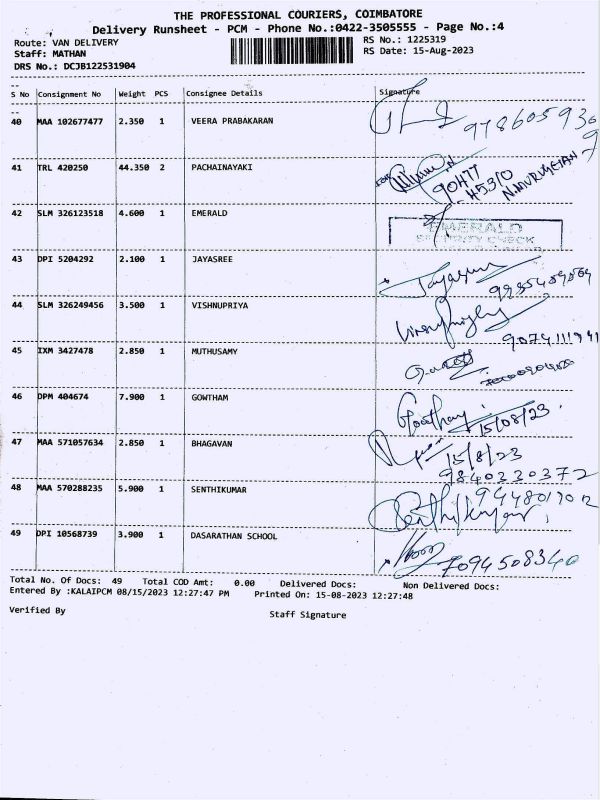 THE PROFESSIONAL COURIERS, COIMBATORE
Delivery Runsheet - PCM - Phone No.:0422-3505555 - Page No.:4
Route: VAN DELIVERY RS No.: 1225319
Staff: MATHAN RS Date: 15-Aug-2023
DRS No.: DCJB122531904
S No Consignment No Weight PCS Consignee Details Signature
40 MAA 102677477 2.350 1 VEERA PRABAKARAN
41 TRL 420250 44.350 2 PACHAINAYAKI
N.MURUGESAN
42 SLM 326123518 4.600 1 EMERALD
EMERALD
SECURITY CHECK
43 DPI 5204292 2.100 1 JAYASREE
44 SLM 326249456 3.500 1 VISHNUPRIYA
9074111941
45 IXM 3427478 2.850 1 MUTHUSAMY
46 DPM 404674 7.900 1 GOWTHAM
15/08/23
47 MAA 571057634 2.850 1 BHAGAVAN
15/8/23
9840230372
48 MAA 570288235 5.900 1 SENTHIKUMAR
49 DPI 10568739 3.900 1 DASARATHAN SCHOOL
7094508340
Total No. Of Docs: 49 Total COD Amt: 0.00 Delivered Docs: Non Delivered Docs:
Entered By :KALAIPCM 08/15/2023 12:27:47 PM Printed On: 15-08-2023 12:27:48
Verified By Staff Signature